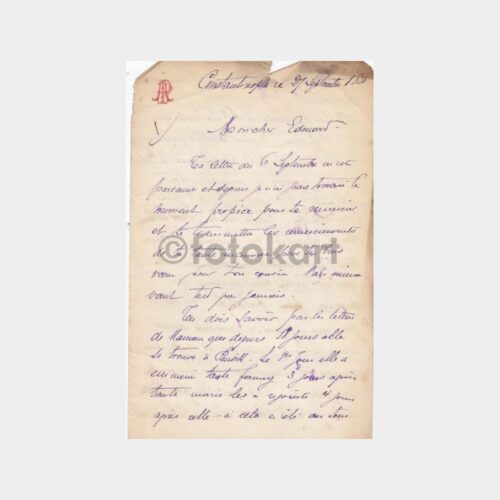 Constantinople ce 27 Septembre
1/
Mon cher Edouard.
Ta lettre du 6 Septembre m'est
parvenue et depuis je n'ai pas trouvé le
moment propice pour te remercier
et te transmettre les remerciements
de la tante
©fotokart
vœux pour ton cousin. Mais mieux
vaut tard que jamais.
Tu dois savoir par les lettres
de Maman que depuis 18 jours elle
se trouve à . Le 1er jour elle a
emmené tante Fanny 3 jours après
tante Marie les a rejoints 4 jours
après celle-ci cela a été au tour